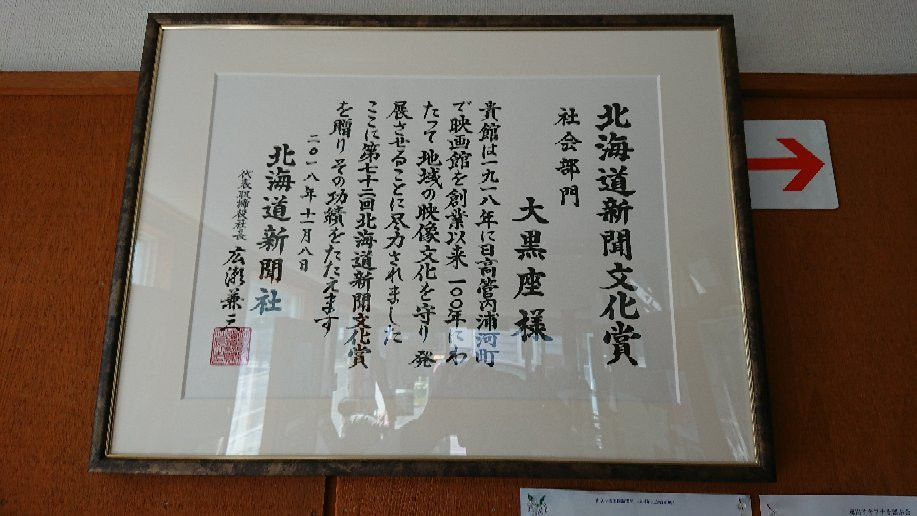 北海道新聞文化賞
社会部門
大黒座様
貴館は一九一八年に日高管内浦河町
で映画館を創業以来一〇〇年にわ
たって地域の映像文化を守り発
展させることに尽力されました
ここに第七十二回北海道新聞文化賞
を贈りその功績をたたえます
二〇一八年十一月八日
北海道新聞社
代表取締役社長 広瀬兼三